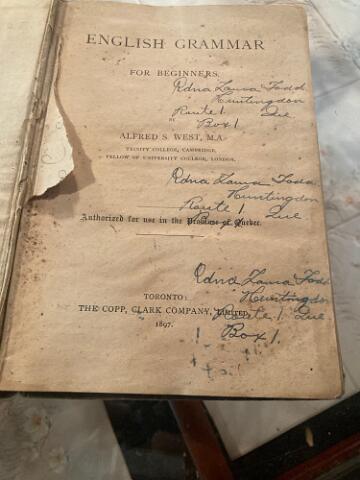 ENGLISH GRAMMAR
FOR BEGINNERS,
Edna Laura Todd
Huntingdon
Route 1 Que
BY
Box 1
ALFRED S. WEST, M.A.
TRINITY COLLEGE, CAMBRIDGE,
FELLOW OF UNIVERSITY COLLEGE, LONDON.
Edna Laura Todd
Huntingdon
Route 1 Que
Authorized for use in the Province of Quebec.
Box 1
Edna Laura Todd
Huntingdon
TORONTO:
THE COPP, CLARK COMPANY, LIMITED,
Route 1 Que
1897.
1 Box 1